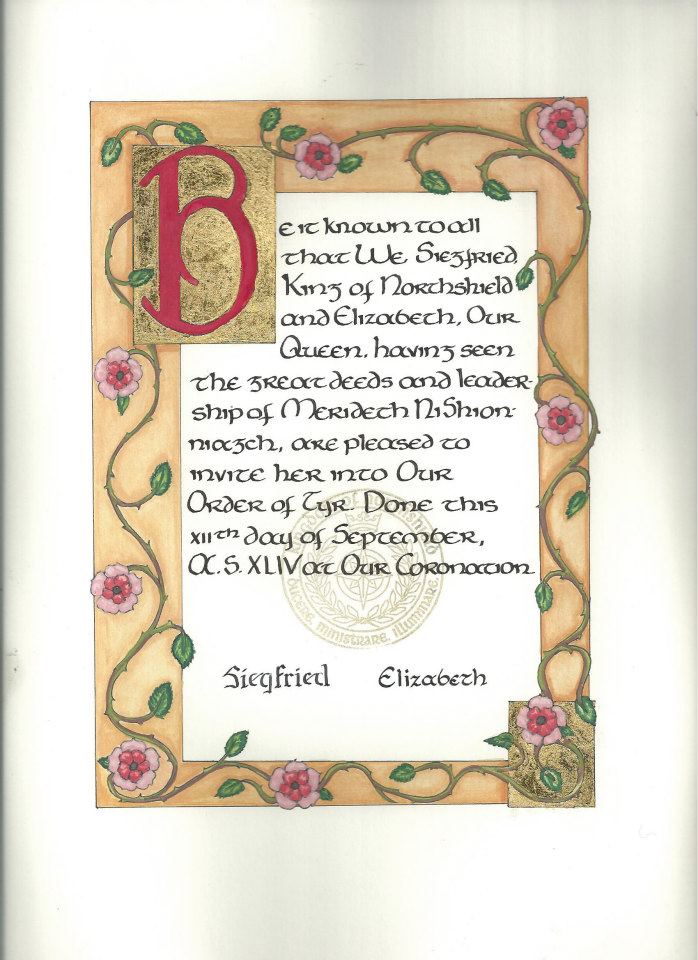 Be it known to all
that We Siegfried,
King of Northshield
and Elizabeth, Our
Queen, having seen
the great deeds and leader-
ship of Merideth NiShion-
niagth, are pleased to
invite her into Our
Order of Tyr. Done this
xiith day of September,
A.S. XLIV at Our Coronation.
DUCERE, MINISTRARE, ILLUMINARE
Siegfried Elizabeth